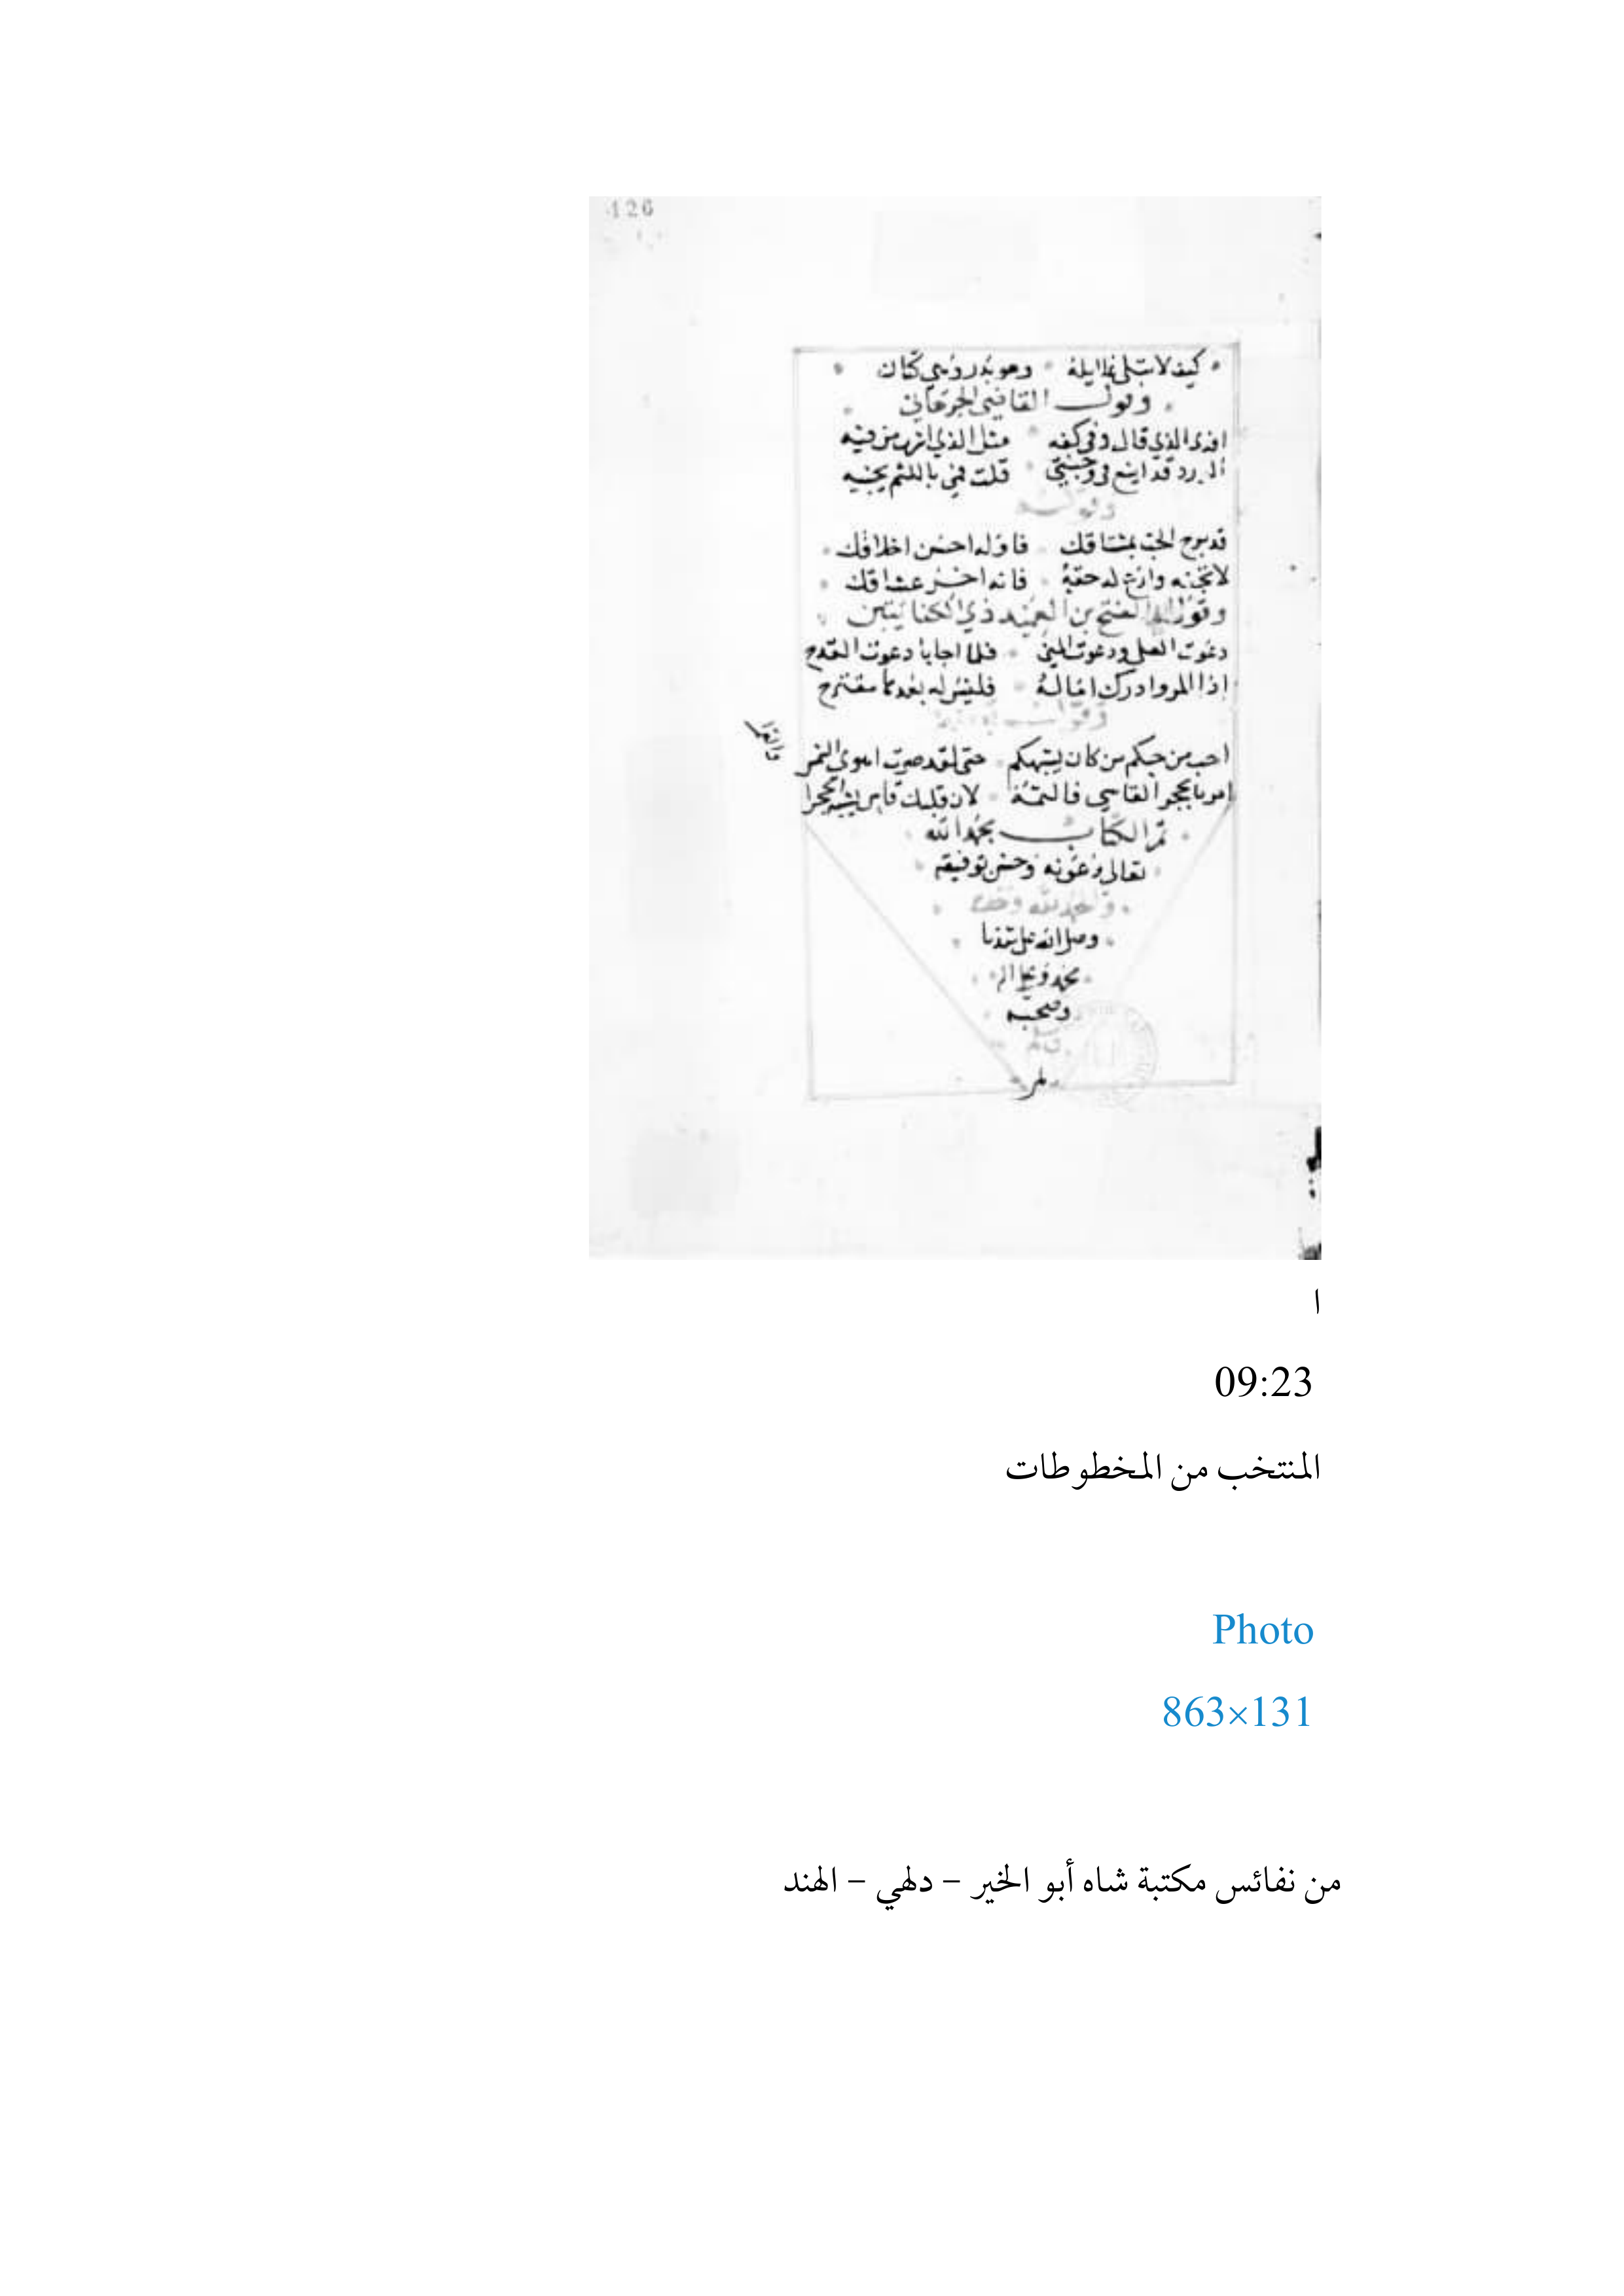 126
كيف لا تبلى غلايله وهو بدر وهي كتان
وقول القاضي الجرجاني
افدي الذي قال وفي كفه مثل الذي اشرب من فيه
الورد قد اينع في وجنتي قلت فمي باللثم يجنيه
وقوله
قد برح الحب بمشتاقك فاوله احسن اخلاقك
لا تجفه وارع له حقه فانه اخر عشاقك
وقول ابي الفتح بن العميد ذي الكفايتين
دعوت العلى ودعوت المنى فلما اجابا دعوت القدح
اذا المرو ادرك اماله فليس له بعدها مقترح
وقول
احب من حبكم من كان يشبهكم حتى لقد صرت اهوى الشمس والقمرا
امر بالحجر القاسي فالثمه لان قلبك قاس يشبه الحجرا
تم الكتاب بحمد الله
تعالى وعونه وحسن توفيقه
والحمد لله وحده
وصلى الله على سيدنا
محمد وعلى اله
وصحبه
وسلم
ا
09:23
المنتخب من المخطوطات
Photo
863×131
من نفائس مكتبة شاه أبو الخير – دلهي – الهند